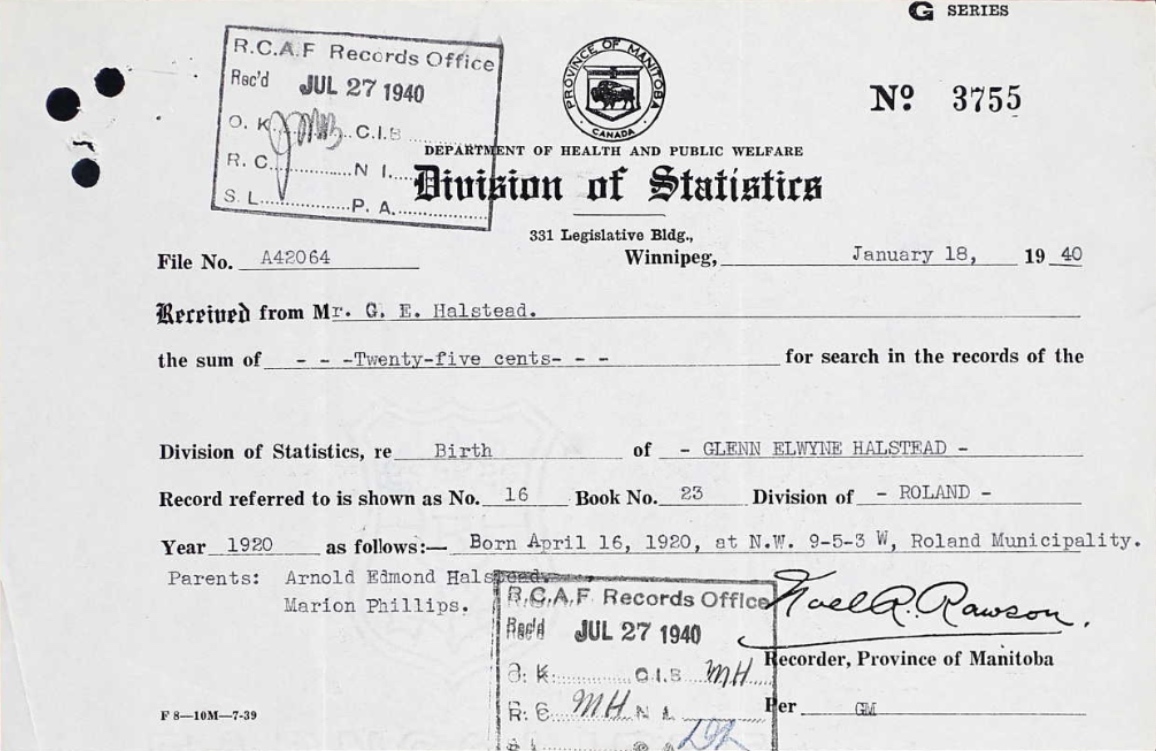 G SERIES
R.C.A.F Records Office
Rec'd JUL 27 1940
O. K. C.I.B
R. C. N I.
S. L. P. A.
PROVINCE OF MANITOBA
CANADA
Nº 3755
DEPARTMENT OF HEALTH AND PUBLIC WELFARE
Division of Statistics
331 Legislative Bldg.,
File No. A42064 Winnipeg, January 18, 19 40
Received from Mr. G. E. Halstead.
the sum of - - -Twenty-five cents- - - for search in the records of the
Division of Statistics, re Birth of - GLENN ELWYNE HALSTEAD -
Record referred to is shown as No. 16 Book No. 23 Division of - ROLAND -
Year 1920 as follows:— Born April 16, 1920, at N.W. 9-5-3 W, Roland Municipality.
Parents: Arnold Edmond Halstead.
Marion Phillips.
R.C.A.F Records Office
Rec'd JUL 27 1940
O. K. C.I.B MH
R. C. MH N I.
Noel R. Rawson.
Recorder, Province of Manitoba
Per GM
F 8—10M—7-39